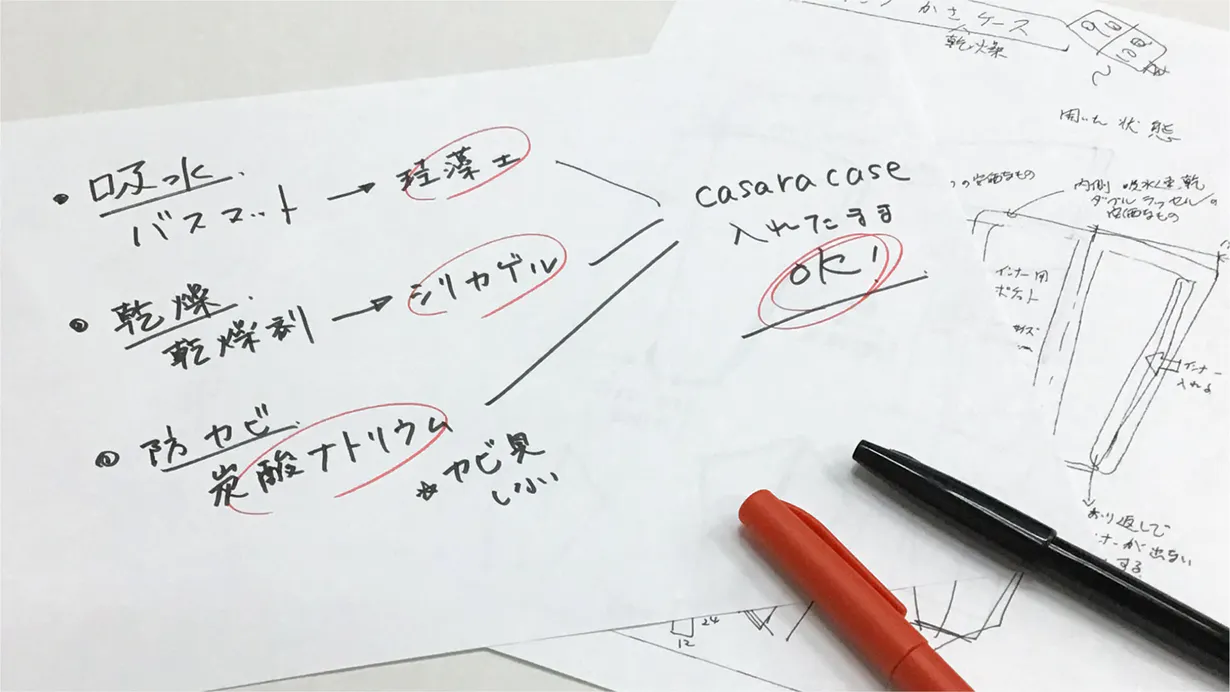 ・吸水
バスマット → 珪藻土
・乾燥
乾燥剤 → シリカゲル
・防カビ
炭酸ナトリウム
*カビ臭
casara case
入れたまま
OK!
かさケース
乾燥
用いた状態
内側 吸水速乾
ダブルラッセルの
安価なもの
の安価なもの
インナー用
ポケット
サイズ
インナー
入れる
おり返して
ナーが出ない
する
24
12